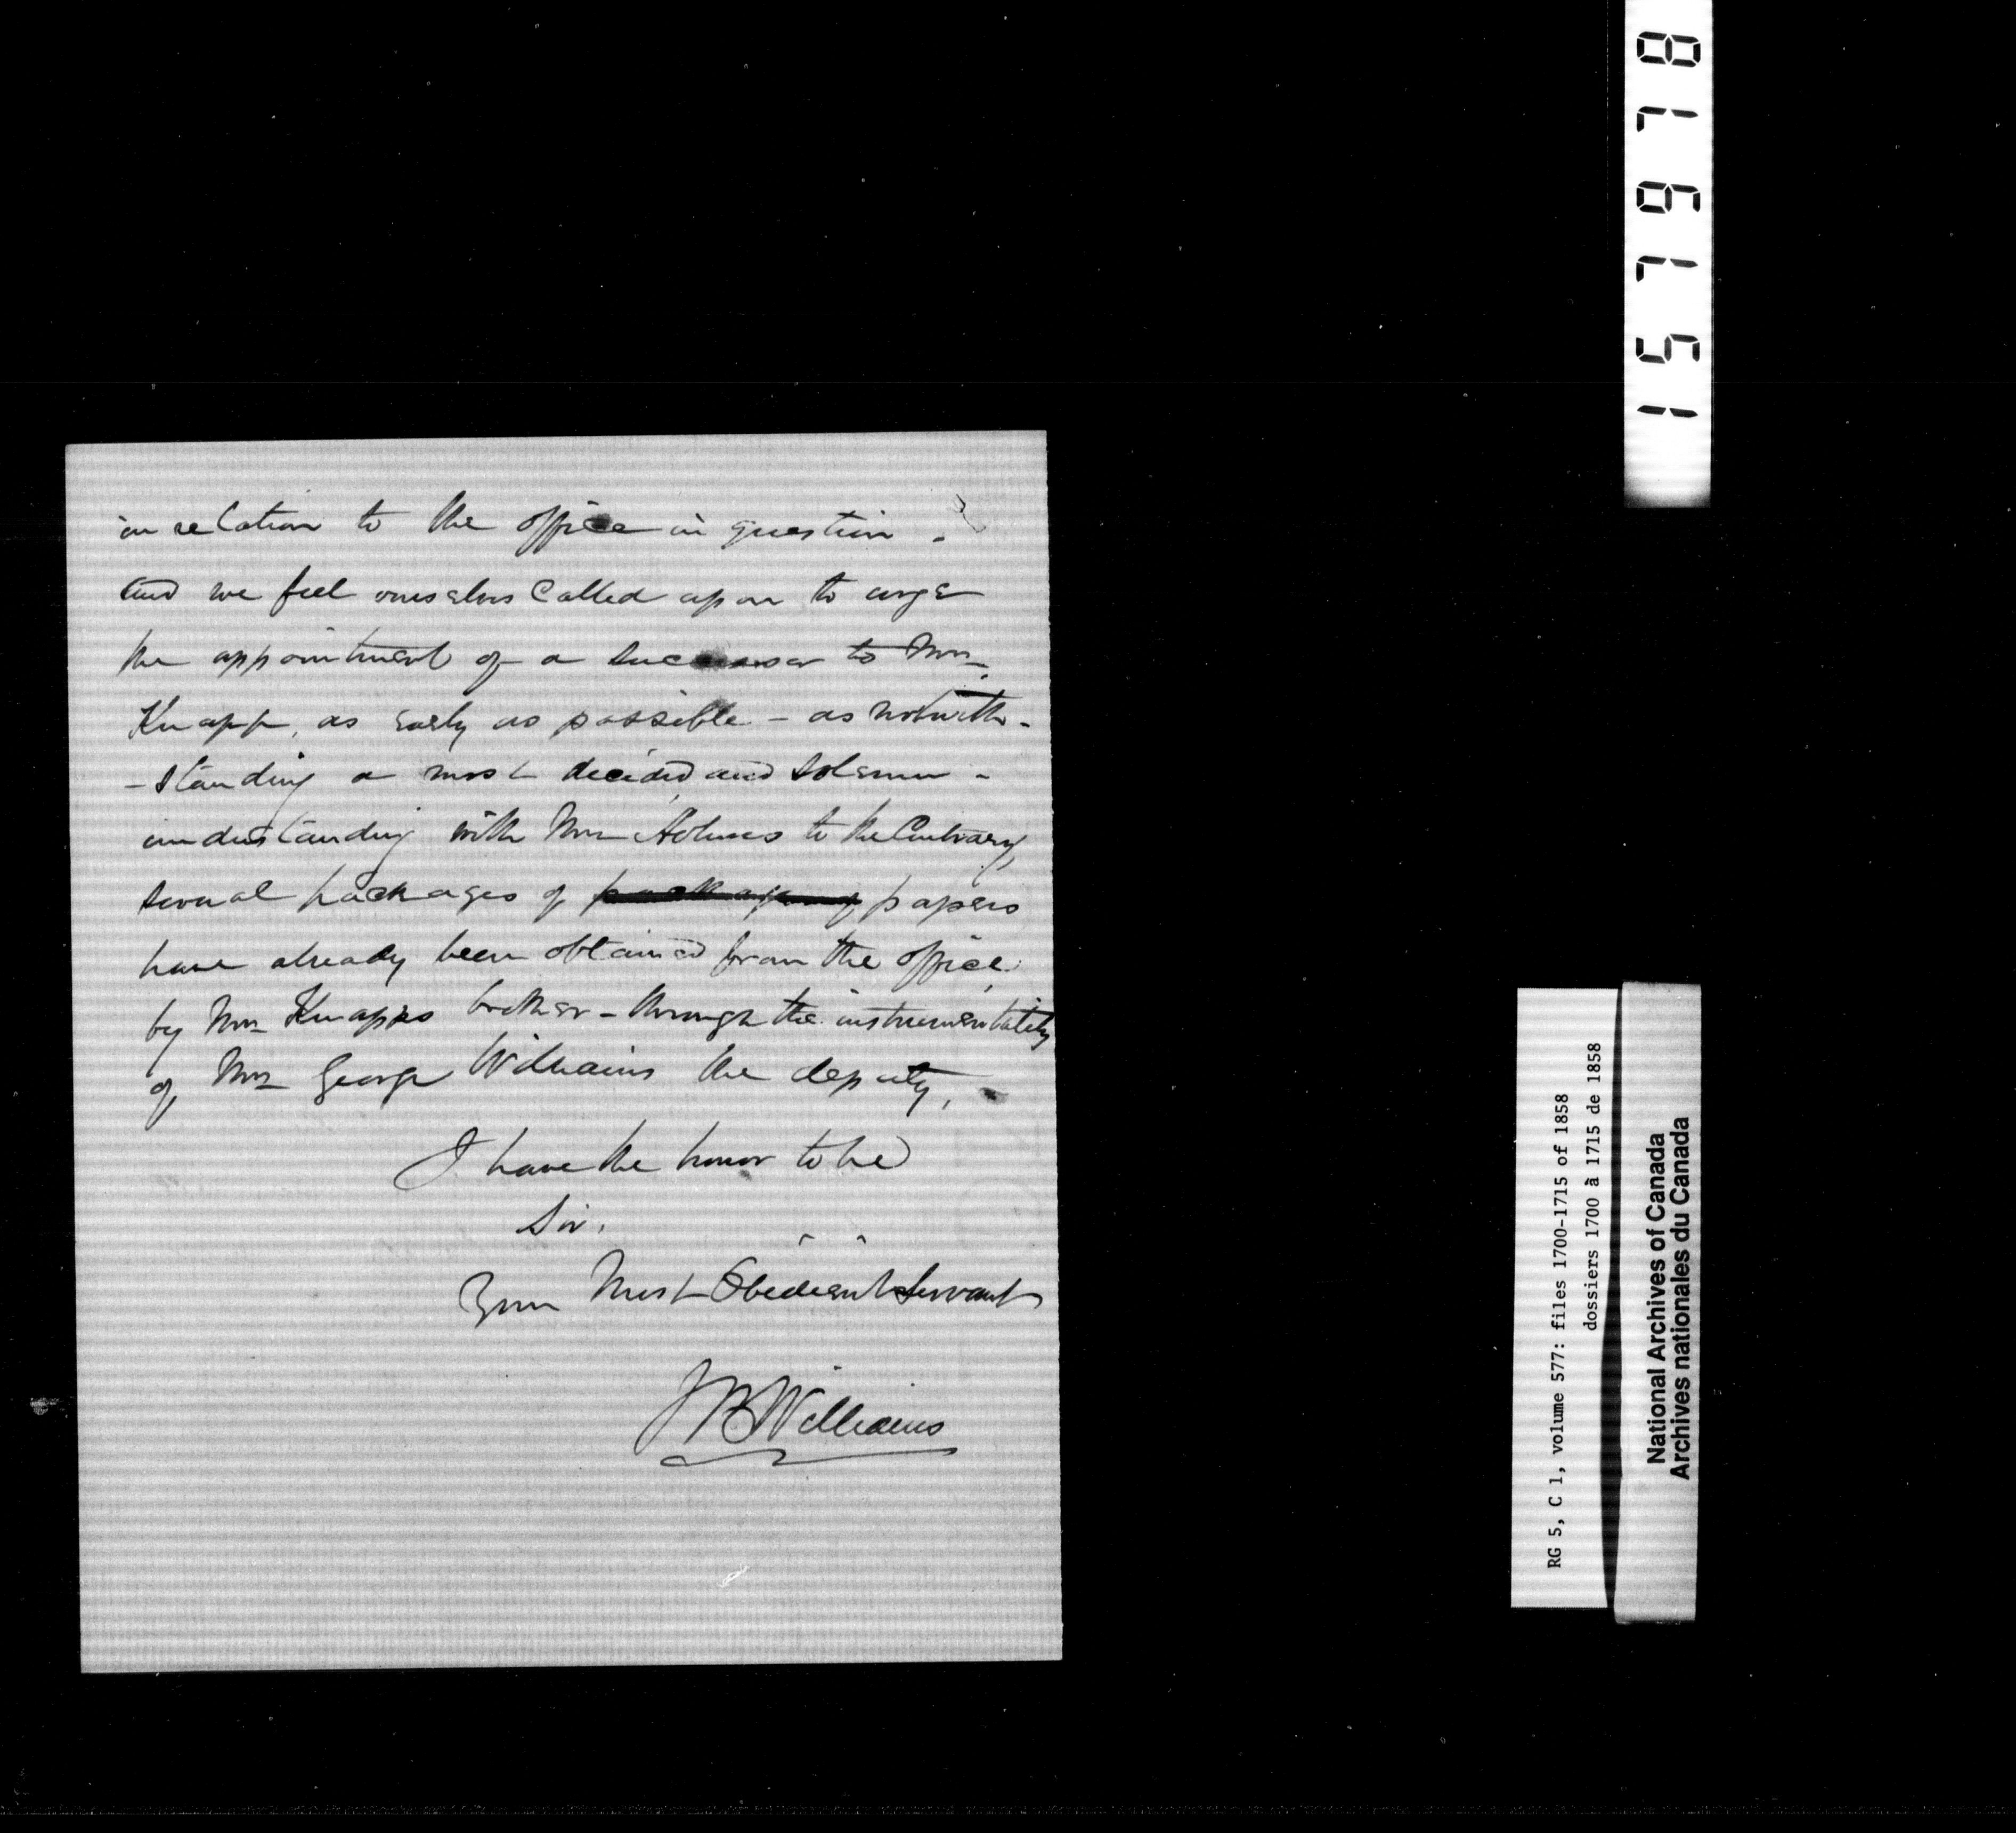 in relation to the office in question.
and we feel ourselves Called upon to urge
the appointment of a successor to Mr
Knapp, as early as possible - as notwith-
-standing a most decided and solemn -
understanding with Mr Holmes to the Contrary,
several packages of packages of papers
have already been obtained from the office
by Mr Knapps brother - through the instrumentality
of Mr George Williams the deputy,
I have the honor to be
Sir,
Your Most Obedient Servant
JBWilliams
157978
RG 5, C 1, volume 577: files 1700-1715 of 1858
dossiers 1700 à 1715 de 1858
National Archives of Canada
Archives nationales du Canada